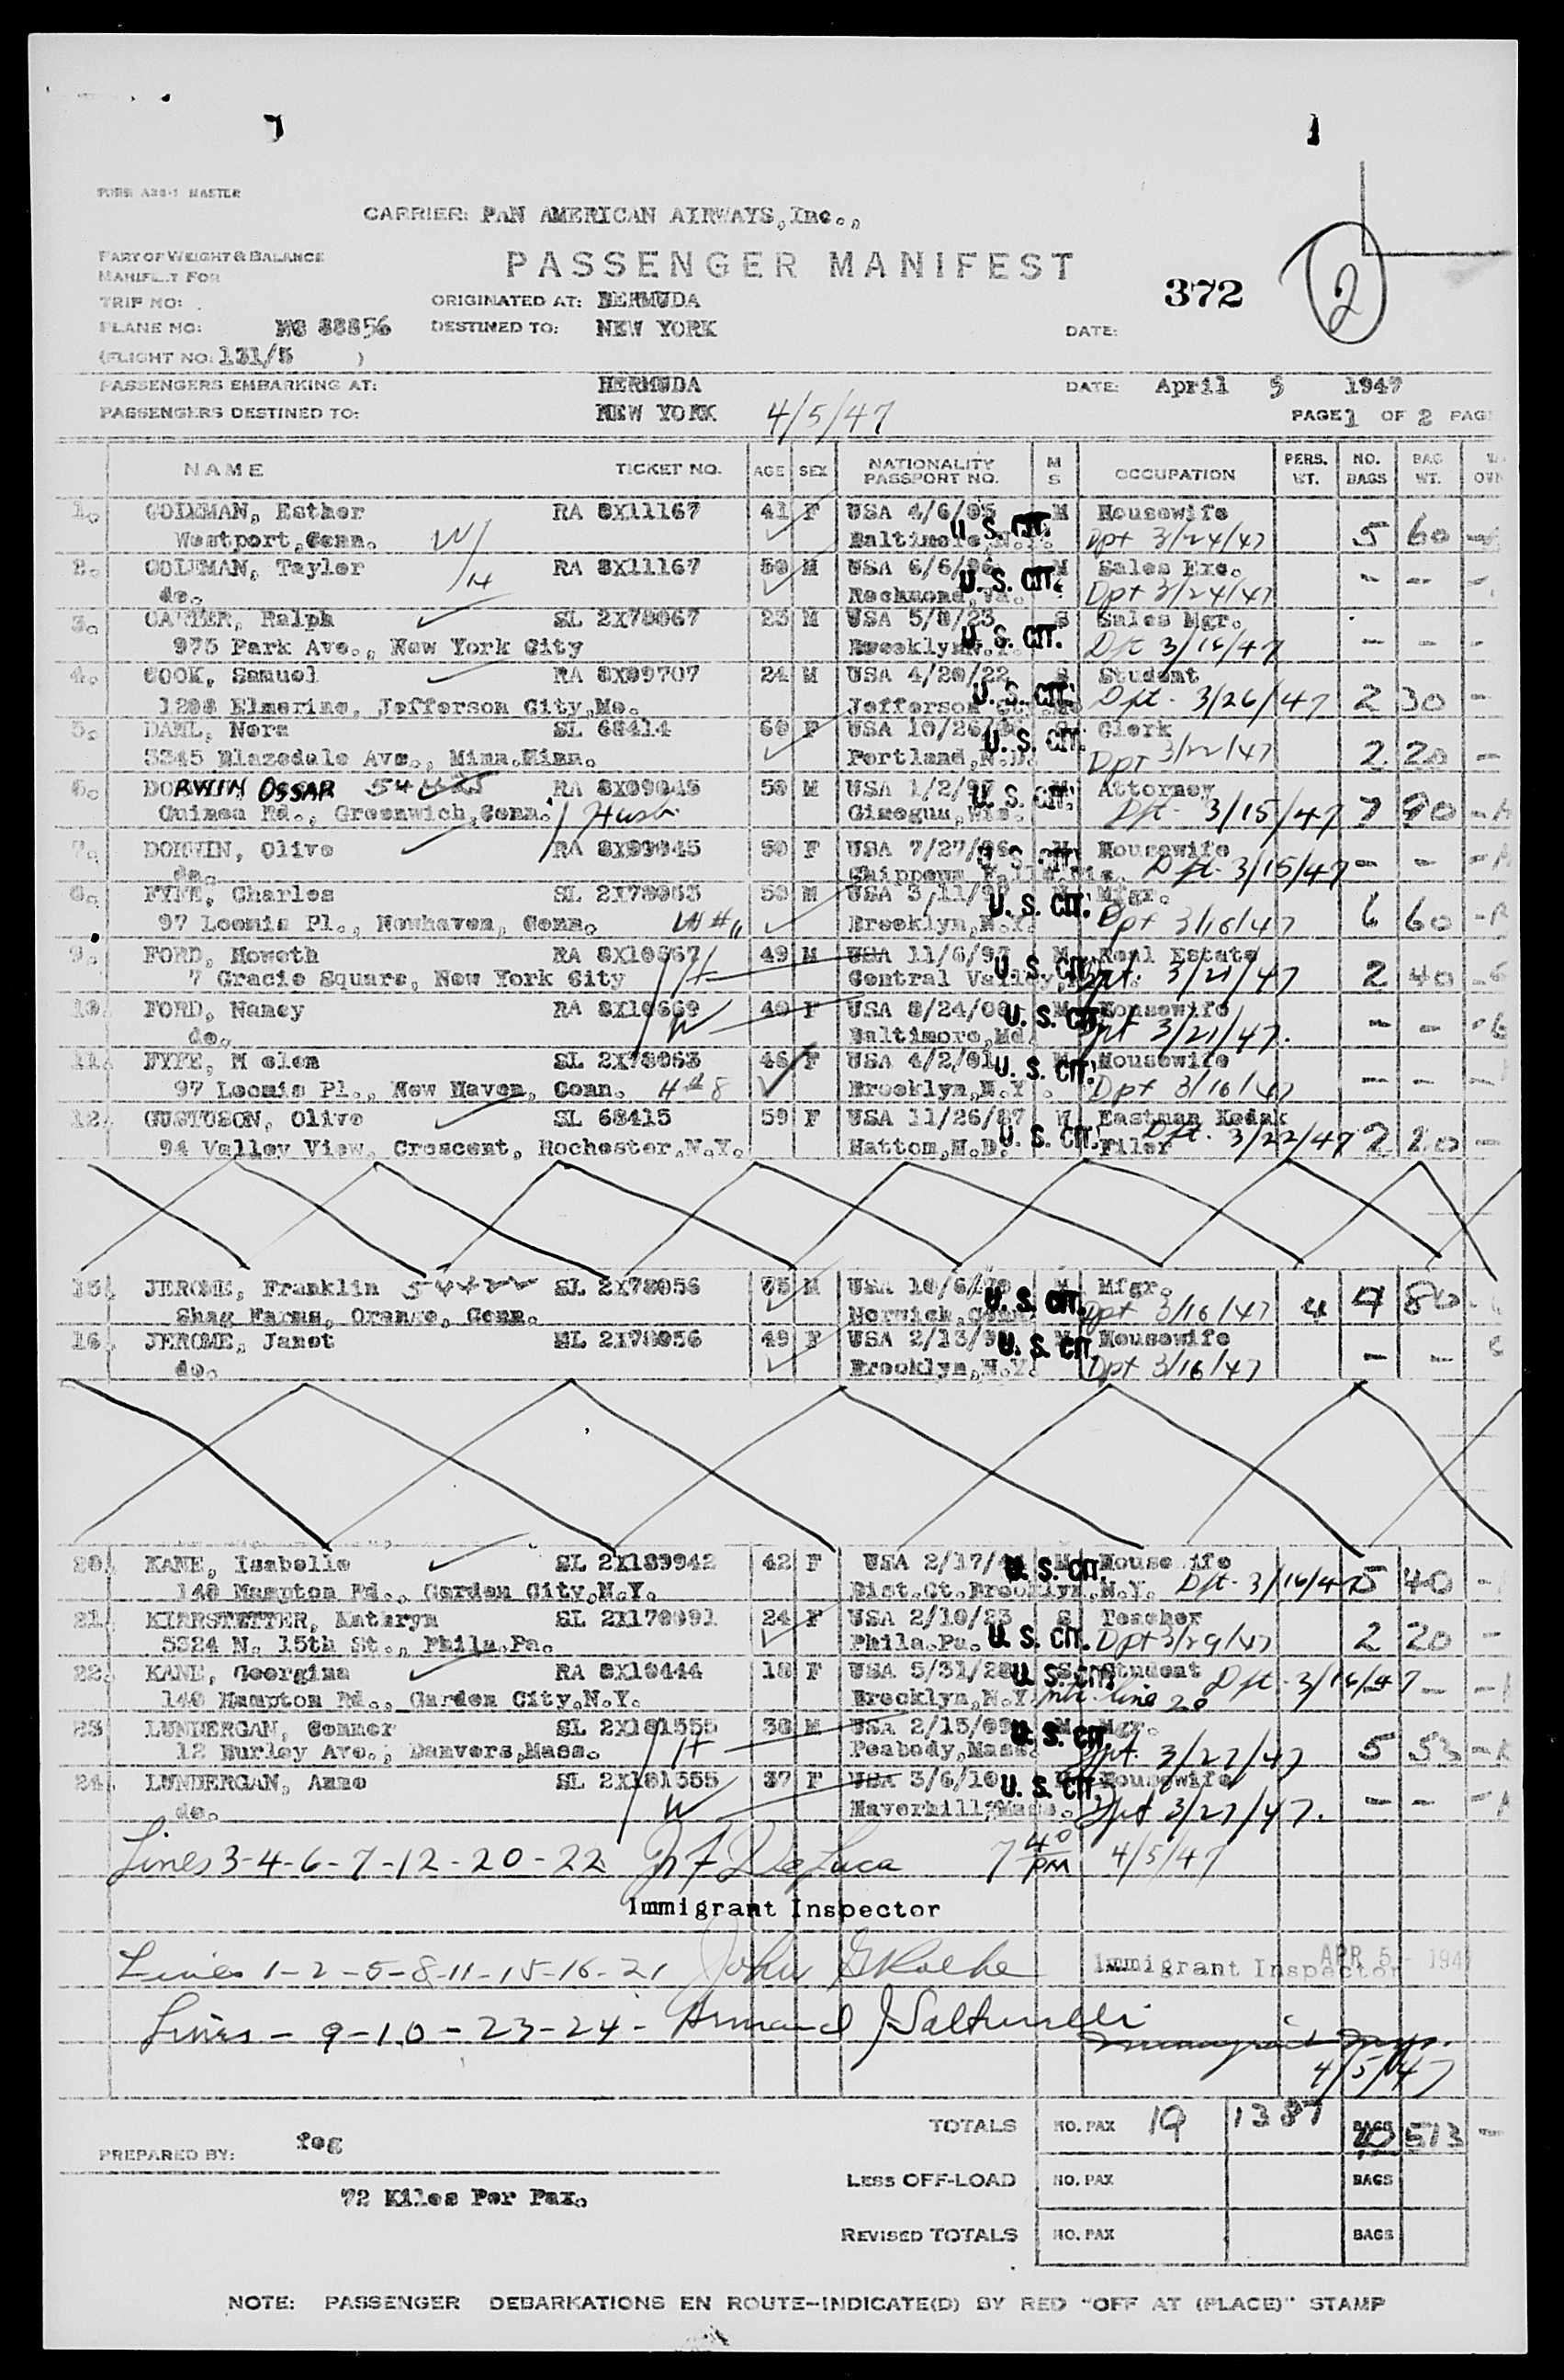 FORM A30-1 MASTER
CARRIER: PAN AMERICAN AIRWAYS,Inc.,
PART OF WEIGHT & BALANCE
PASSENGER MANIFEST
MANIFEST FOR
372
2
TRIP NO:
ORIGINATED AT: BERMUDA
PLANE NO: 88856
DESTINED TO: NEW YORK
DATE:
(FLIGHT NO: 131/5 )
PASSENGERS EMBARKING AT: BERMUDA DATE: April 5 1947
PASSENGERS DESTINED TO: NEW YORK 4/5/47 PAGE 1 OF 2
NAME TICKET NO. AGE SEX NATIONALITY PASSPORT NO. M S OCCUPATION PERS. WT. NO. BAGS BAG WT.
1. Esther RA 8X11167 41 F USA 4/6/05 M Housewife
Westport,Conn. W/ Baltimore U. S. CIT. Dpt 3/24/47 5 60 -
2. Tayler RA 8X11167 50 M USA 6/6/96 M Sales Exe.
do. /H U. S. CIT. Dpt 3/24/47 - - -
3. Ralph SL 2X78067 23 M USA 5/8/23 S Sales Mgr.
975 Park Ave., New York City Brooklyn U. S. CIT. Dpt 3/16/47 - - -
4. COOK, Samuel RA 8X09707 24 M USA 4/20/22 S Student
Elmerine, Jefferson City,Mo. Jefferson U. S. CIT. Dpt. 3/26/47 2 30 -
5. DAHL, Nora SL 68414 60 F USA 10/26/ S Clerk
5345 Ave., Minn.Minn. Portland,N.D. U. S. CIT. Dpt 3/22/47 2 20 -
6. DORWIN OSSAR RA 8X09045 50 M USA 1/2/97 Attorney
Guinea Rd., Greenwich,Conn. Husb U. S. CIT. Dpt. 3/15/47 7 90 -
7. DORWIN, Olive RA 8X09045 50 F USA 7/27/96 M Housewife
do. Chippewa Falls,Wis. U. S. CIT. Dpt. 3/15/47 - - -
8. FYFE, Charles SL 2X78063 50 M USA 3/11/ M Mfgr.
97 Loomis Pl., Newhaven, Conn. W#11 Brooklyn,N.Y. U. S. CIT. Dpt 3/16/47 6 60 -
9. FORD, Howeth RA 8X10667 49 M USA 11/6/97 M Real Estate
7 Gracie Square, New York City /H Central Valley, U. S. CIT. Dpt. 3/21/47 2 40 -
10. FORD, Nancy RA 8X10669 40 F USA 8/24/06 M Housewife
do. W Baltimore,Md. U. S. CIT. Dpt 3/21/47. - - -
11. FYFE, H elen SL 2X78063 46 F USA 4/2/01 M Housewife
97 Loomis Pl., New Haven, Conn. H#8 Brooklyn,N.Y. U. S. CIT. Dpt 3/16/47 - - -
12. GUSTOSON, Olive SL 68415 59 F USA 11/26/87 W Eastman Kodak
94 Valley View, Crescent, Rochester,N.Y. Hatton,N.D. U. S. CIT. Filer Dpt. 3/22/47 2 20 -
15. JEROME, Franklin SL 2X78056 75 M USA 10/6/ M Mfgr.
Shag Farms, Orange, Conn. Norwich,Conn. U. S. CIT. Dpt 3/16/47 4 80
16. JEROME, Janet SL 2X78056 49 F USA 2/13/ M Housewife
do. Brooklyn,N.Y. U. S. CIT. Dpt 3/16/47 - -
20. KANE, Isabelle SL 2X189942 42 F USA 2/17/ M Housewife
140 Hampton Rd., Garden City,N.Y. Dist.Ct.Brooklyn,N.Y. U. S. CIT. Dpt. 3/16/47 5 40 -
21. KIERSTETTER, Kathryn SL 2X178091 24 F USA 2/10/23 S Teacher
5324 N. 15th St., Phila.Pa. Phila.Pa. U. S. CIT. Dpt 3/29/47 2 20 -
22. KANE, Georgina RA 8X10444 18 F USA 5/31/28 S Student
140 Hampton Rd., Garden City,N.Y. Brooklyn,N.Y. U. S. CIT. line 20 Dpt. 3/16/47 - - -
23 LUNDERGAN, Conner SL 2X181555 38 M USA 2/15/09 M Mgr.
12 Burley Ave., Danvers,Mass. /H Peabody,Mass. U. S. CIT. Dpt. 3/27/47 5 53 -
24. LUNDERGAN, Anne SL 2X181555 37 F USA 3/6/10 Housewife
do. W Haverhill,Mass. U. S. CIT. Dpt 3/27/47. - - -
Lines 3-4-6-7-12-20-22 DeLuca 7 40 PM 4/5/47
Immigrant Inspector
Lines 1-2-5-8-11-15-16-21 John Immigrant Inspector APR 5 - 1947
Lines - 9-10-23-24 - Armand J
4/5/47
TOTALS NO. PAX 19 1387 BAGS 513 -
PREPARED BY: feg
LESS OFF-LOAD NO. PAX BAGS
72 Kilos Per Pax.
REVISED TOTALS NO. PAX BAGS
NOTE: PASSENGER DEBARKATIONS EN ROUTE-INDICATE(D) BY RED "OFF AT (PLACE)" STAMP